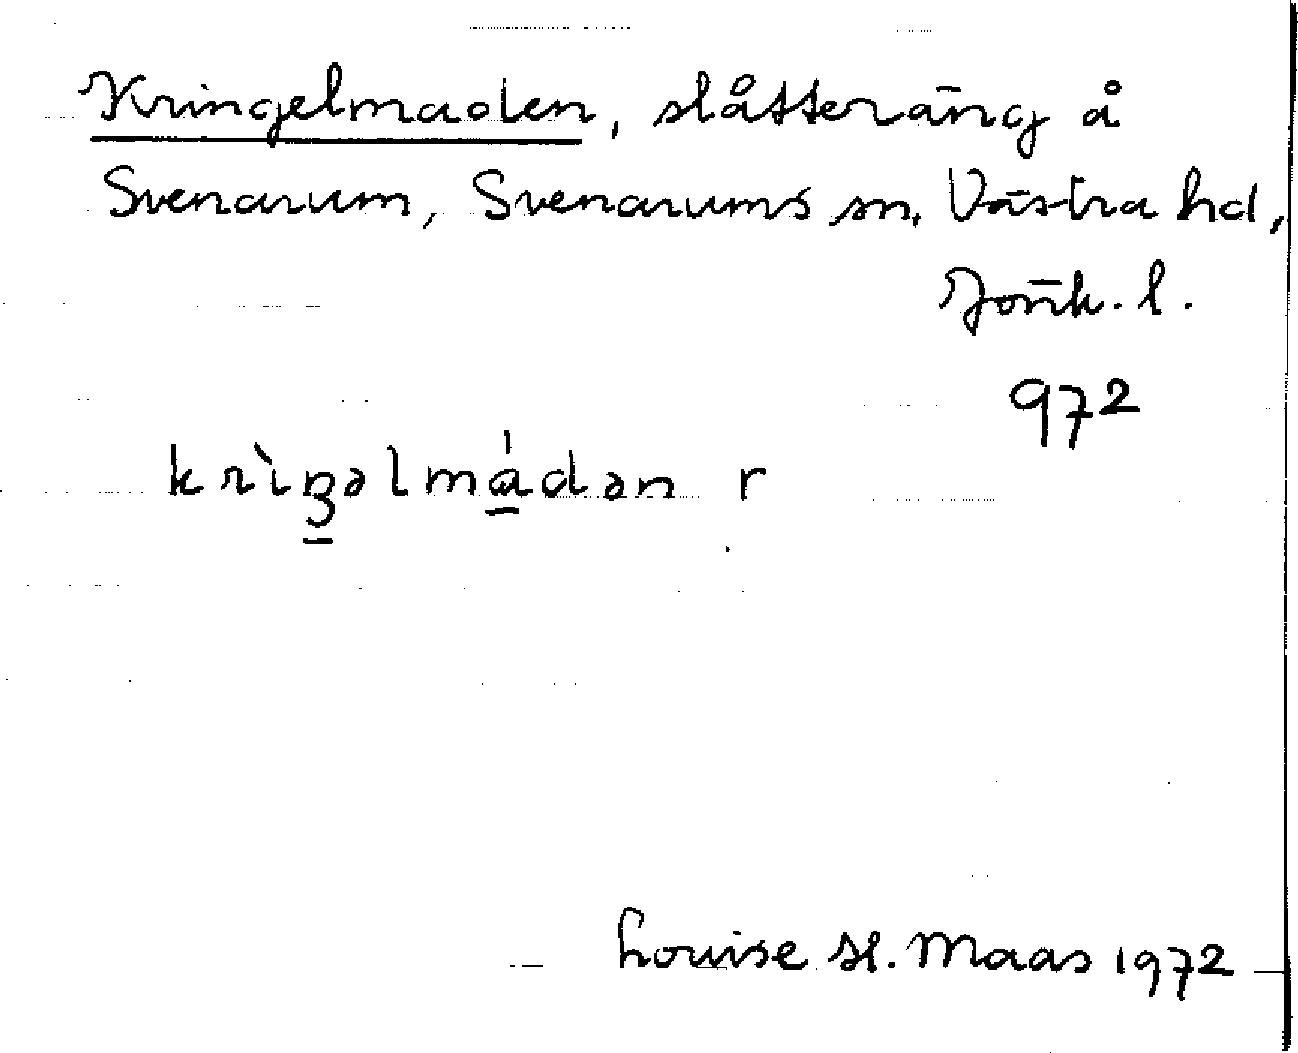 Kringelmaden, slåtteräng å
Svenarum, Svenarums sn, Västra hd,
Jönk. l.
972
krìŋəlmádən r
Louise H. Maas 1972